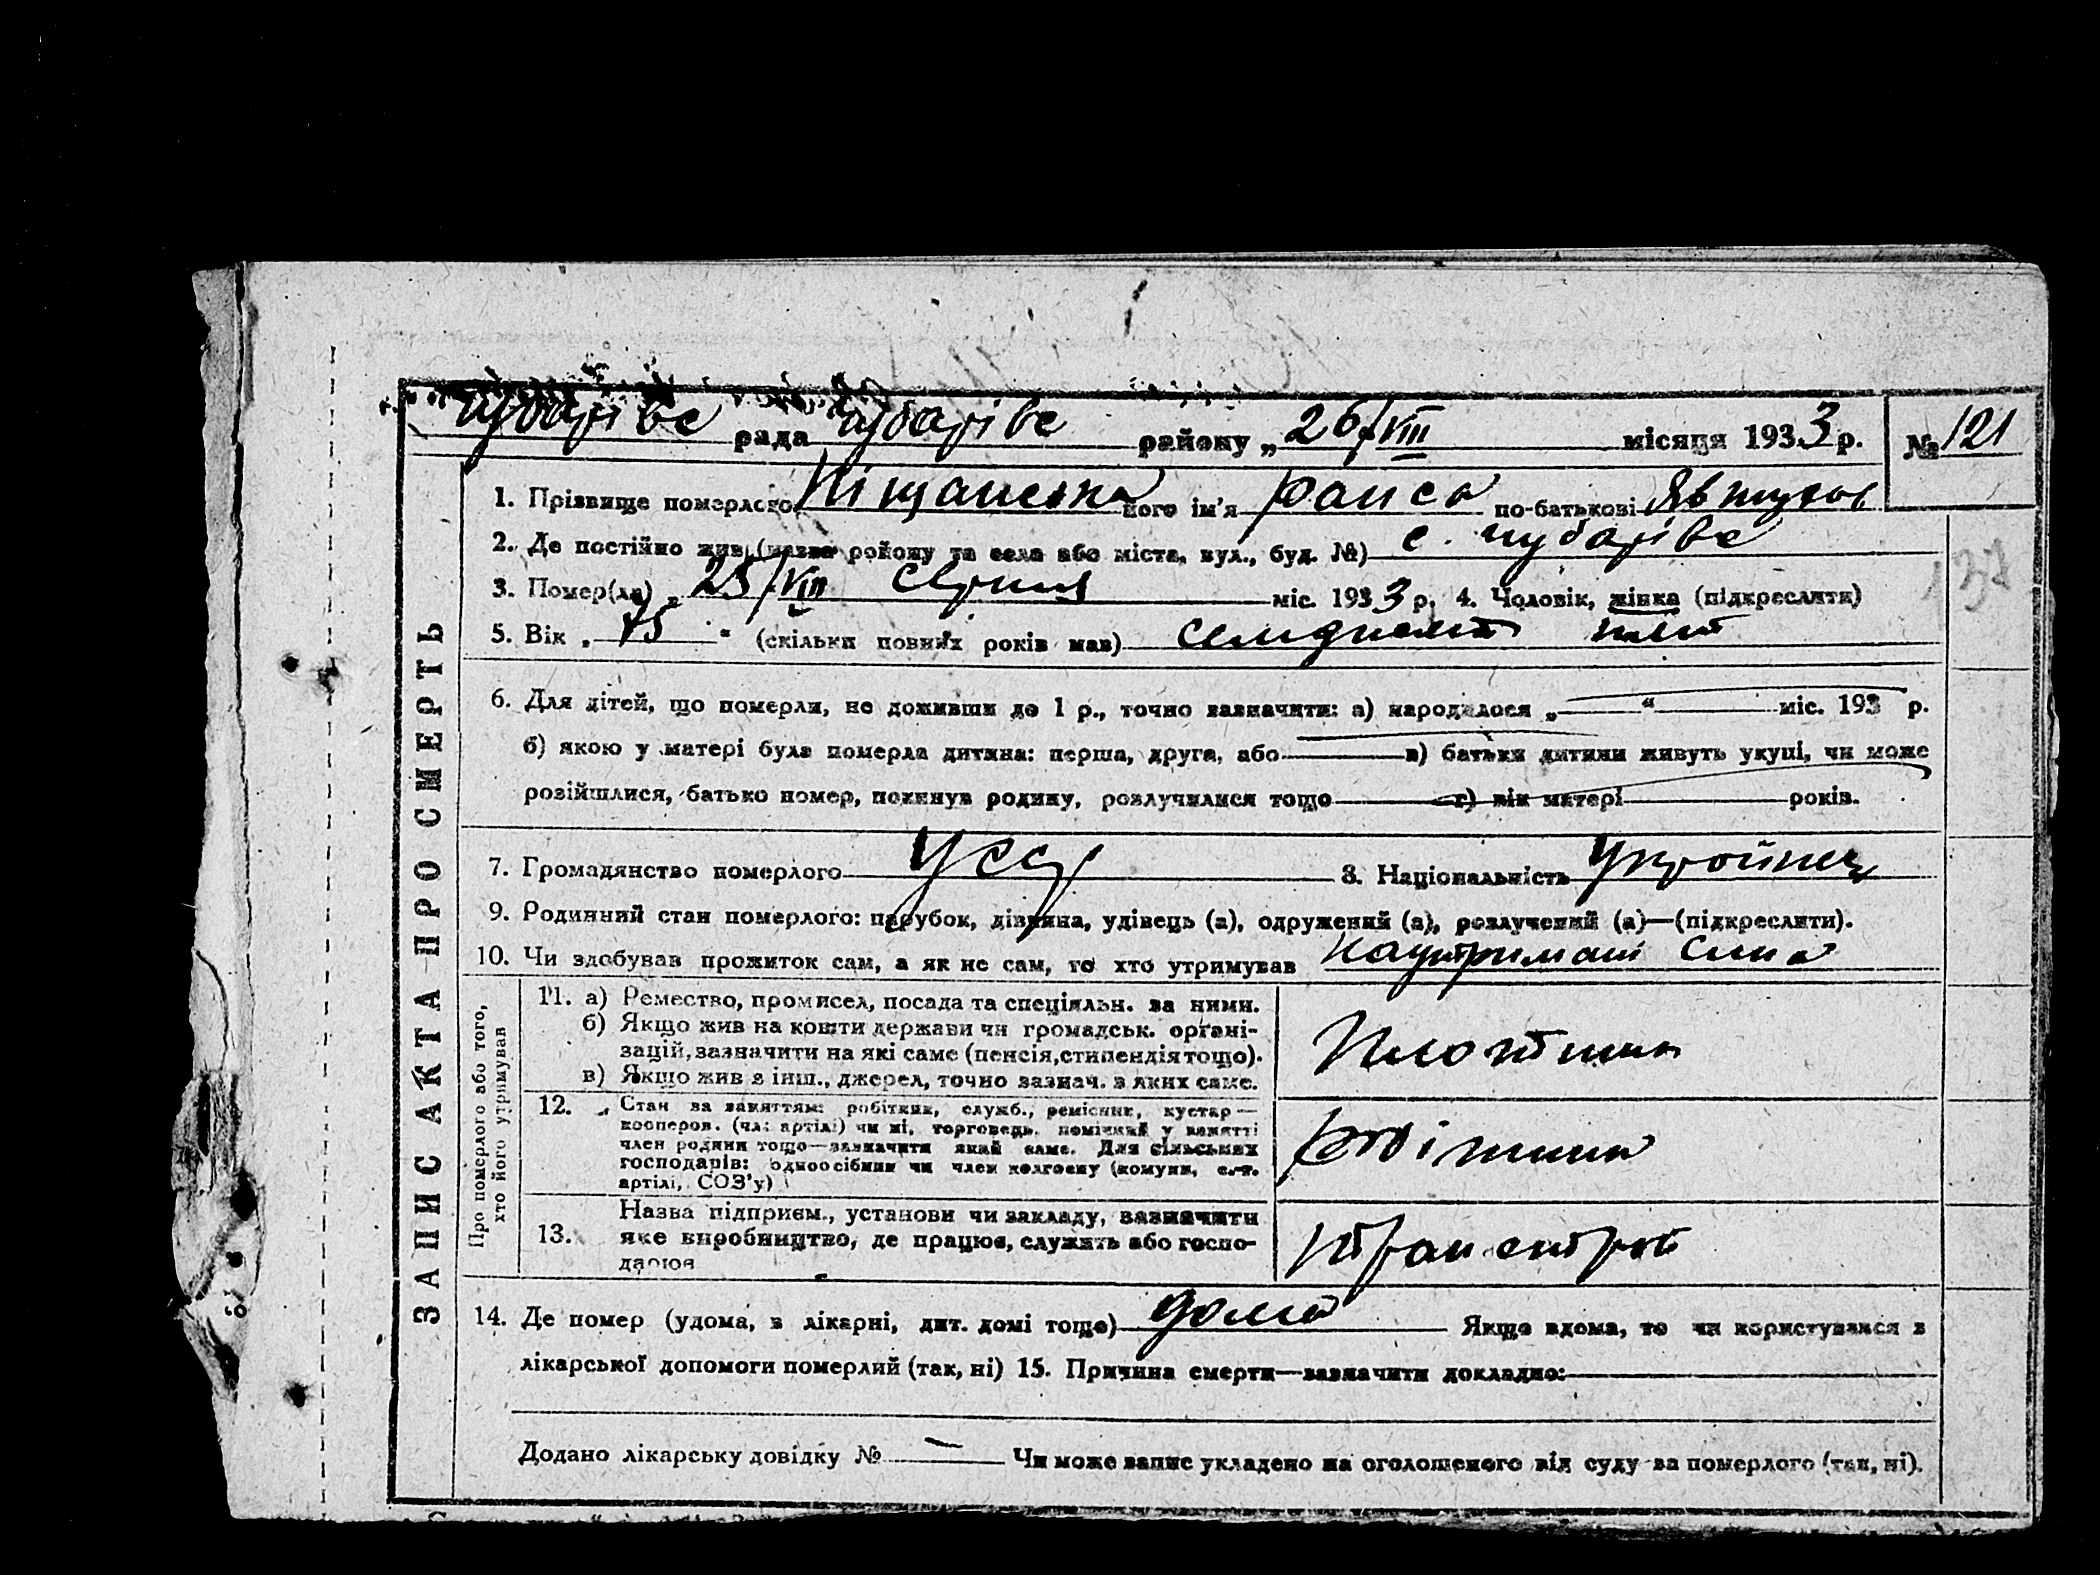 Чубарівс рада Чубарівс району „26/VIII місяця 1933 р. № 121
1. Прізвище померлого Піщанська його ім'я Раиса по-батькові Явтухов
2. Де постійно жив (назва району та села або міста, вул., буд. №) с. Чубарівс
3. Помер(ла) „ 25/VIII серпня міс. 1933 р. 4. Чоловік, жінка (підкреслити)
5. Вік „ 75 " (скільки повних років мав) семдесят пять
6. Для дітей, що померли, не доживши до 1 р., точно зазначити: а) народилося „ " міс. 193 р.
б) якою у матері була померла дитина: перша, друга, або в) батьки дитини живуть укупі, чи може
розійшлися, батько помер, покинув родину, розлучилися тощо г) вік матері років.
7. Громадянство померлого УССР 8. Національність Українец
9. Родинний стан померлого: парубок, дівчина, удівець (а), одружений (а), розлучений (а)—(підкреслити).
10. Чи здобував прожиток сам, а як не сам, то хто утримував на утримані сина
ЗАПИС АКТА ПРО СМЕРТЬ
Про померлого або того,
хто його утримував
11. а) Ремество, промисел, посада та спеціяльн. за ними.
б) Якщо жив на кошти держави чи громадськ. органі-
зацій, зазначити на які саме (пенсія, стипендія тощо).
в) Якщо жив з інш., джерел, точно зазнач. з яких саме.
Плотник
12. Стан за заняттям: робітник, служб., ремісник, кустар—
кооперов. (чл: артілі) чи ні, торговець, помічний у занятті
член родини тощо—зазначити який саме. Для сільських
господарів: одноосібник чи член колгоспу (комуни, с.-г.
артілі, СОЗ'у)
робітник
13. Назва підприєм., установи чи закладу, зазначити
яке виробництво, де працює, служить або госпо-
дарює
14. Де помер (удома, в лікарні, дит. домі тощо) дома Якщо вдома, то чи користувався з
лікарської допомоги померлий (так, ні) 15. Причина смерти—зазначити докладно:
Додано лікарську довідку № — Чи може запис укладено на оголошеного від суду за померлого (так, ні).